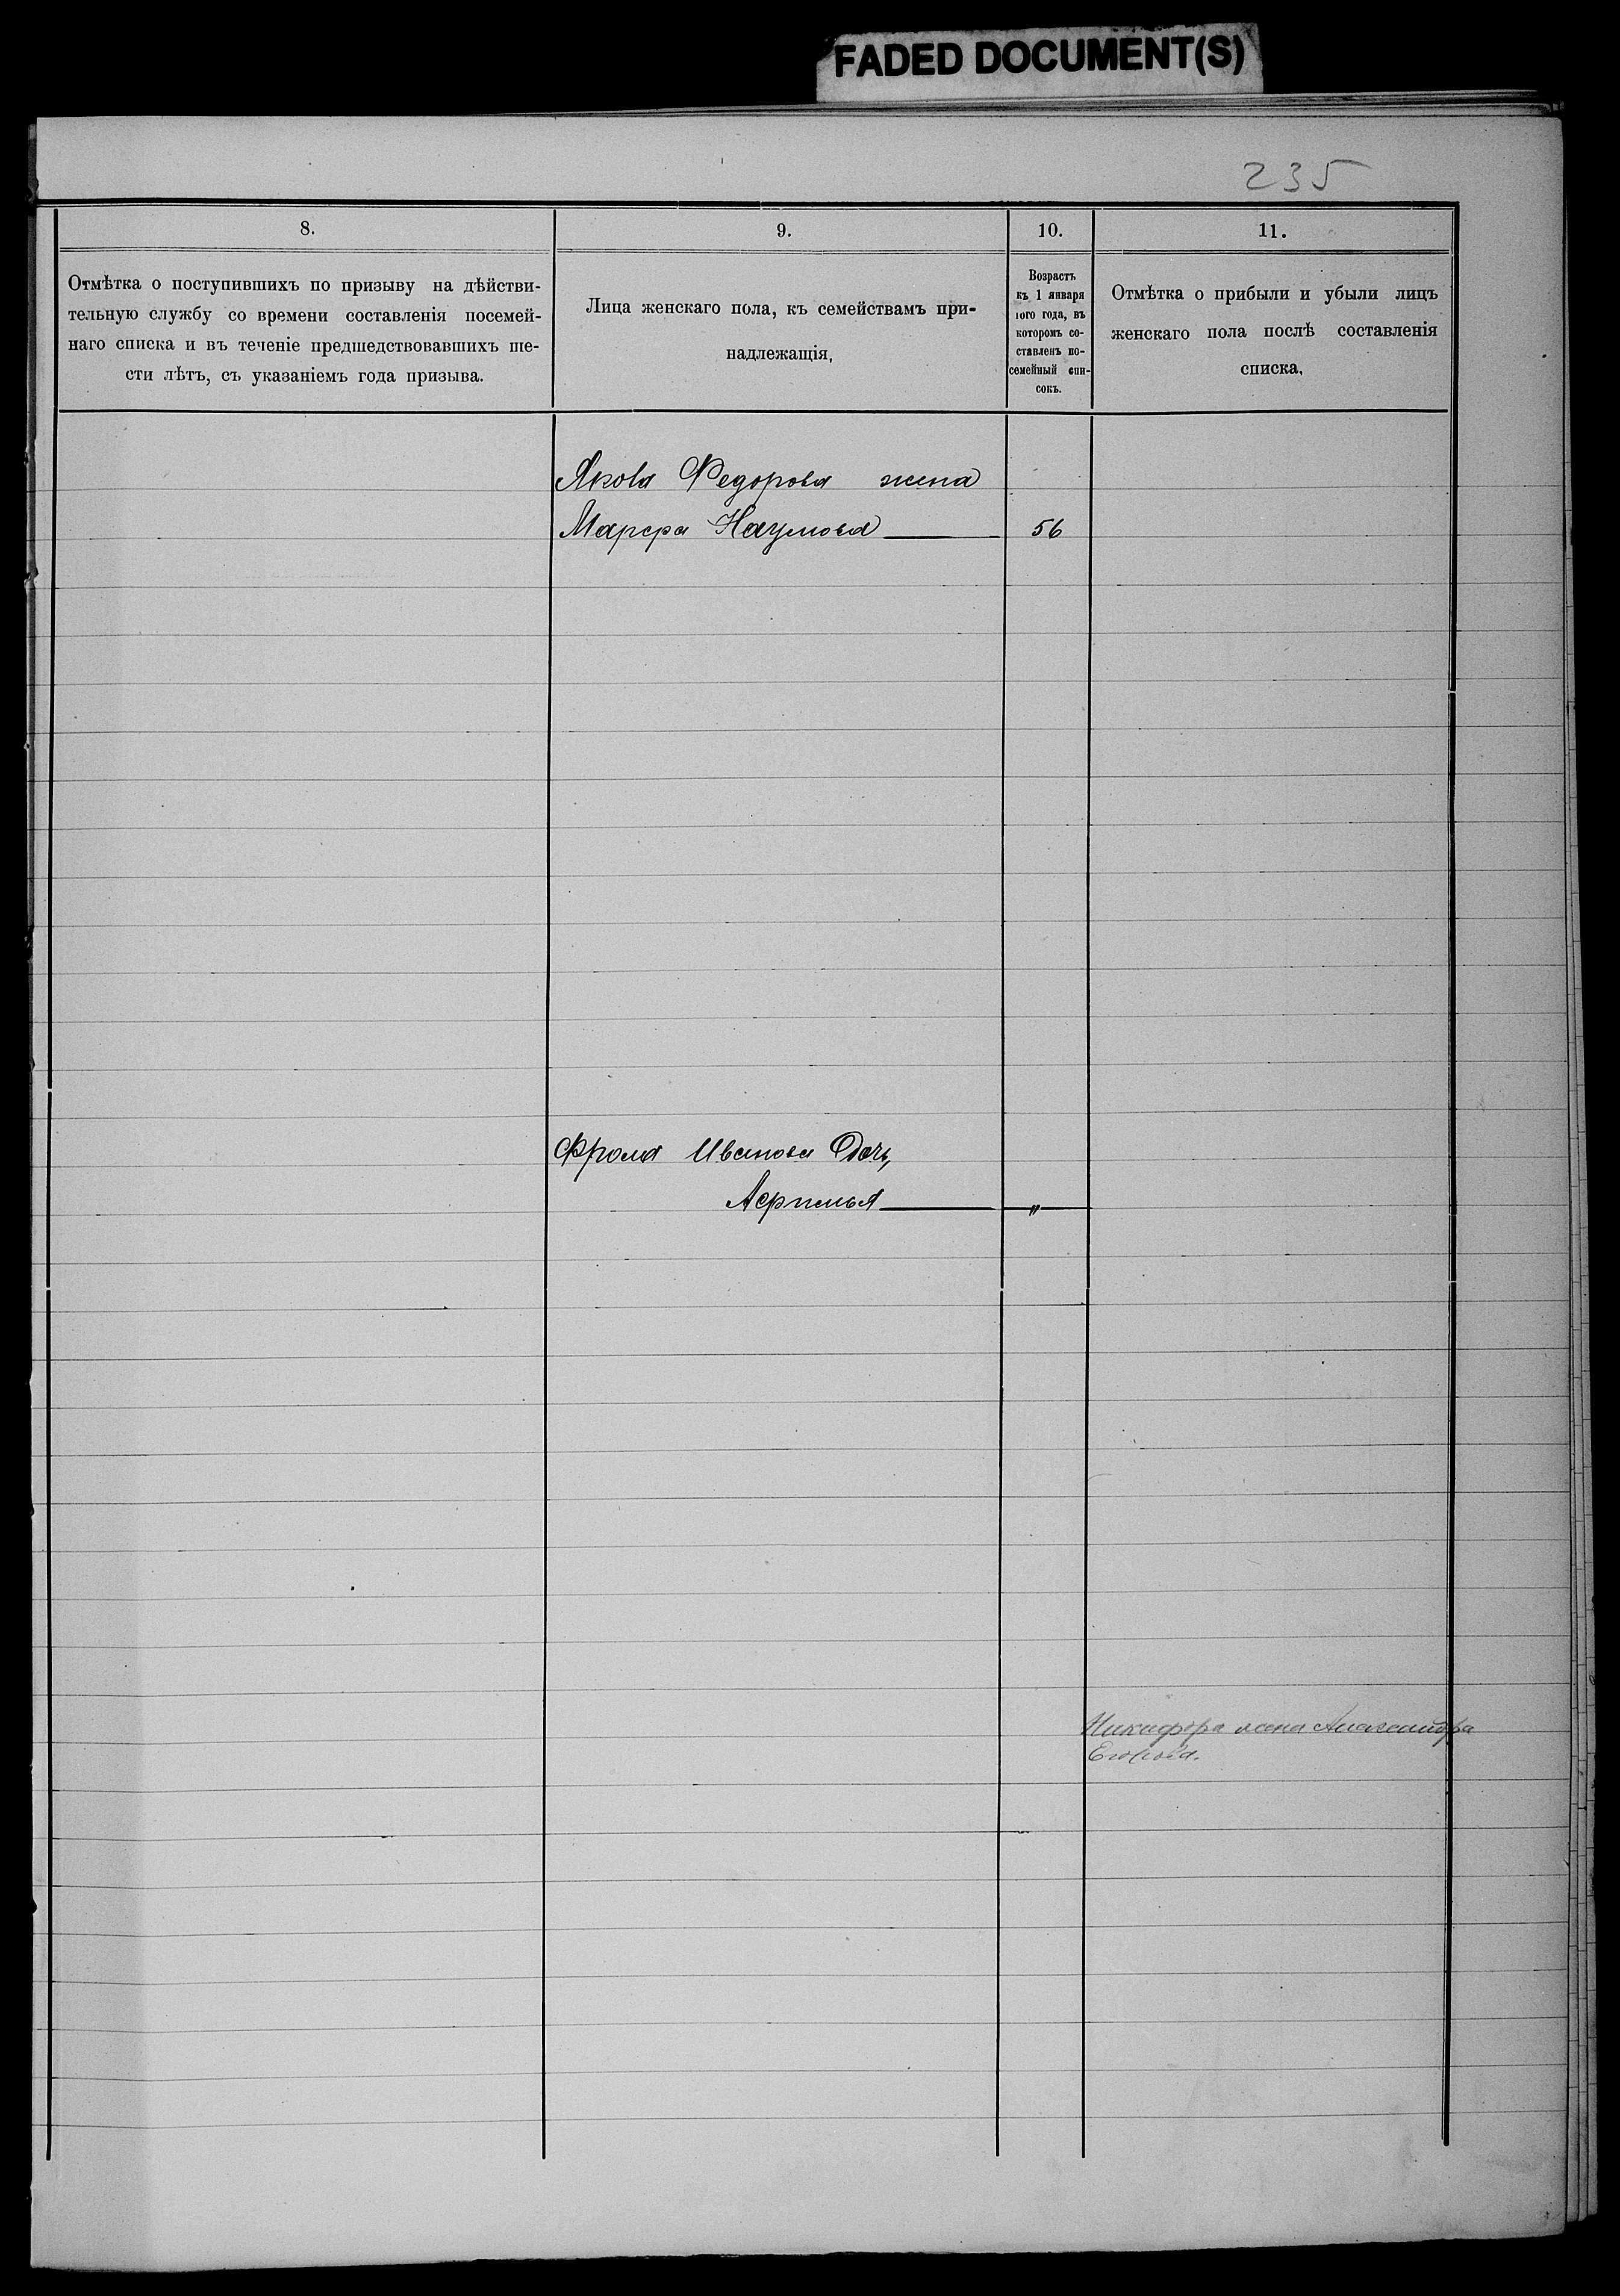 FADED DOCUMENT(S)
235
8.
9.
10.
11.
Отмѣтка о поступившихъ по призыву на дѣйстви-
тельную службу со времени составленія посемей-
наго списка и въ теченіе предшедствовавшихъ ше-
сти лѣтъ, съ указаніемъ года призыва.
Лица женскаго пола, къ семействамъ при-
надлежащія,
Возрастъ
къ 1 января
1ого года, въ
которомъ со-
ставленъ по-
семейный спи-
сокъ.
Отмѣтка о прибыли и убыли лицъ
женскаго пола послѣ составленія
списка,
Якова Федорова жена
Марфа Наумова 56
Фрола Иванова Дочь,
Афимья "
Никифора жена Александра
Егорова.